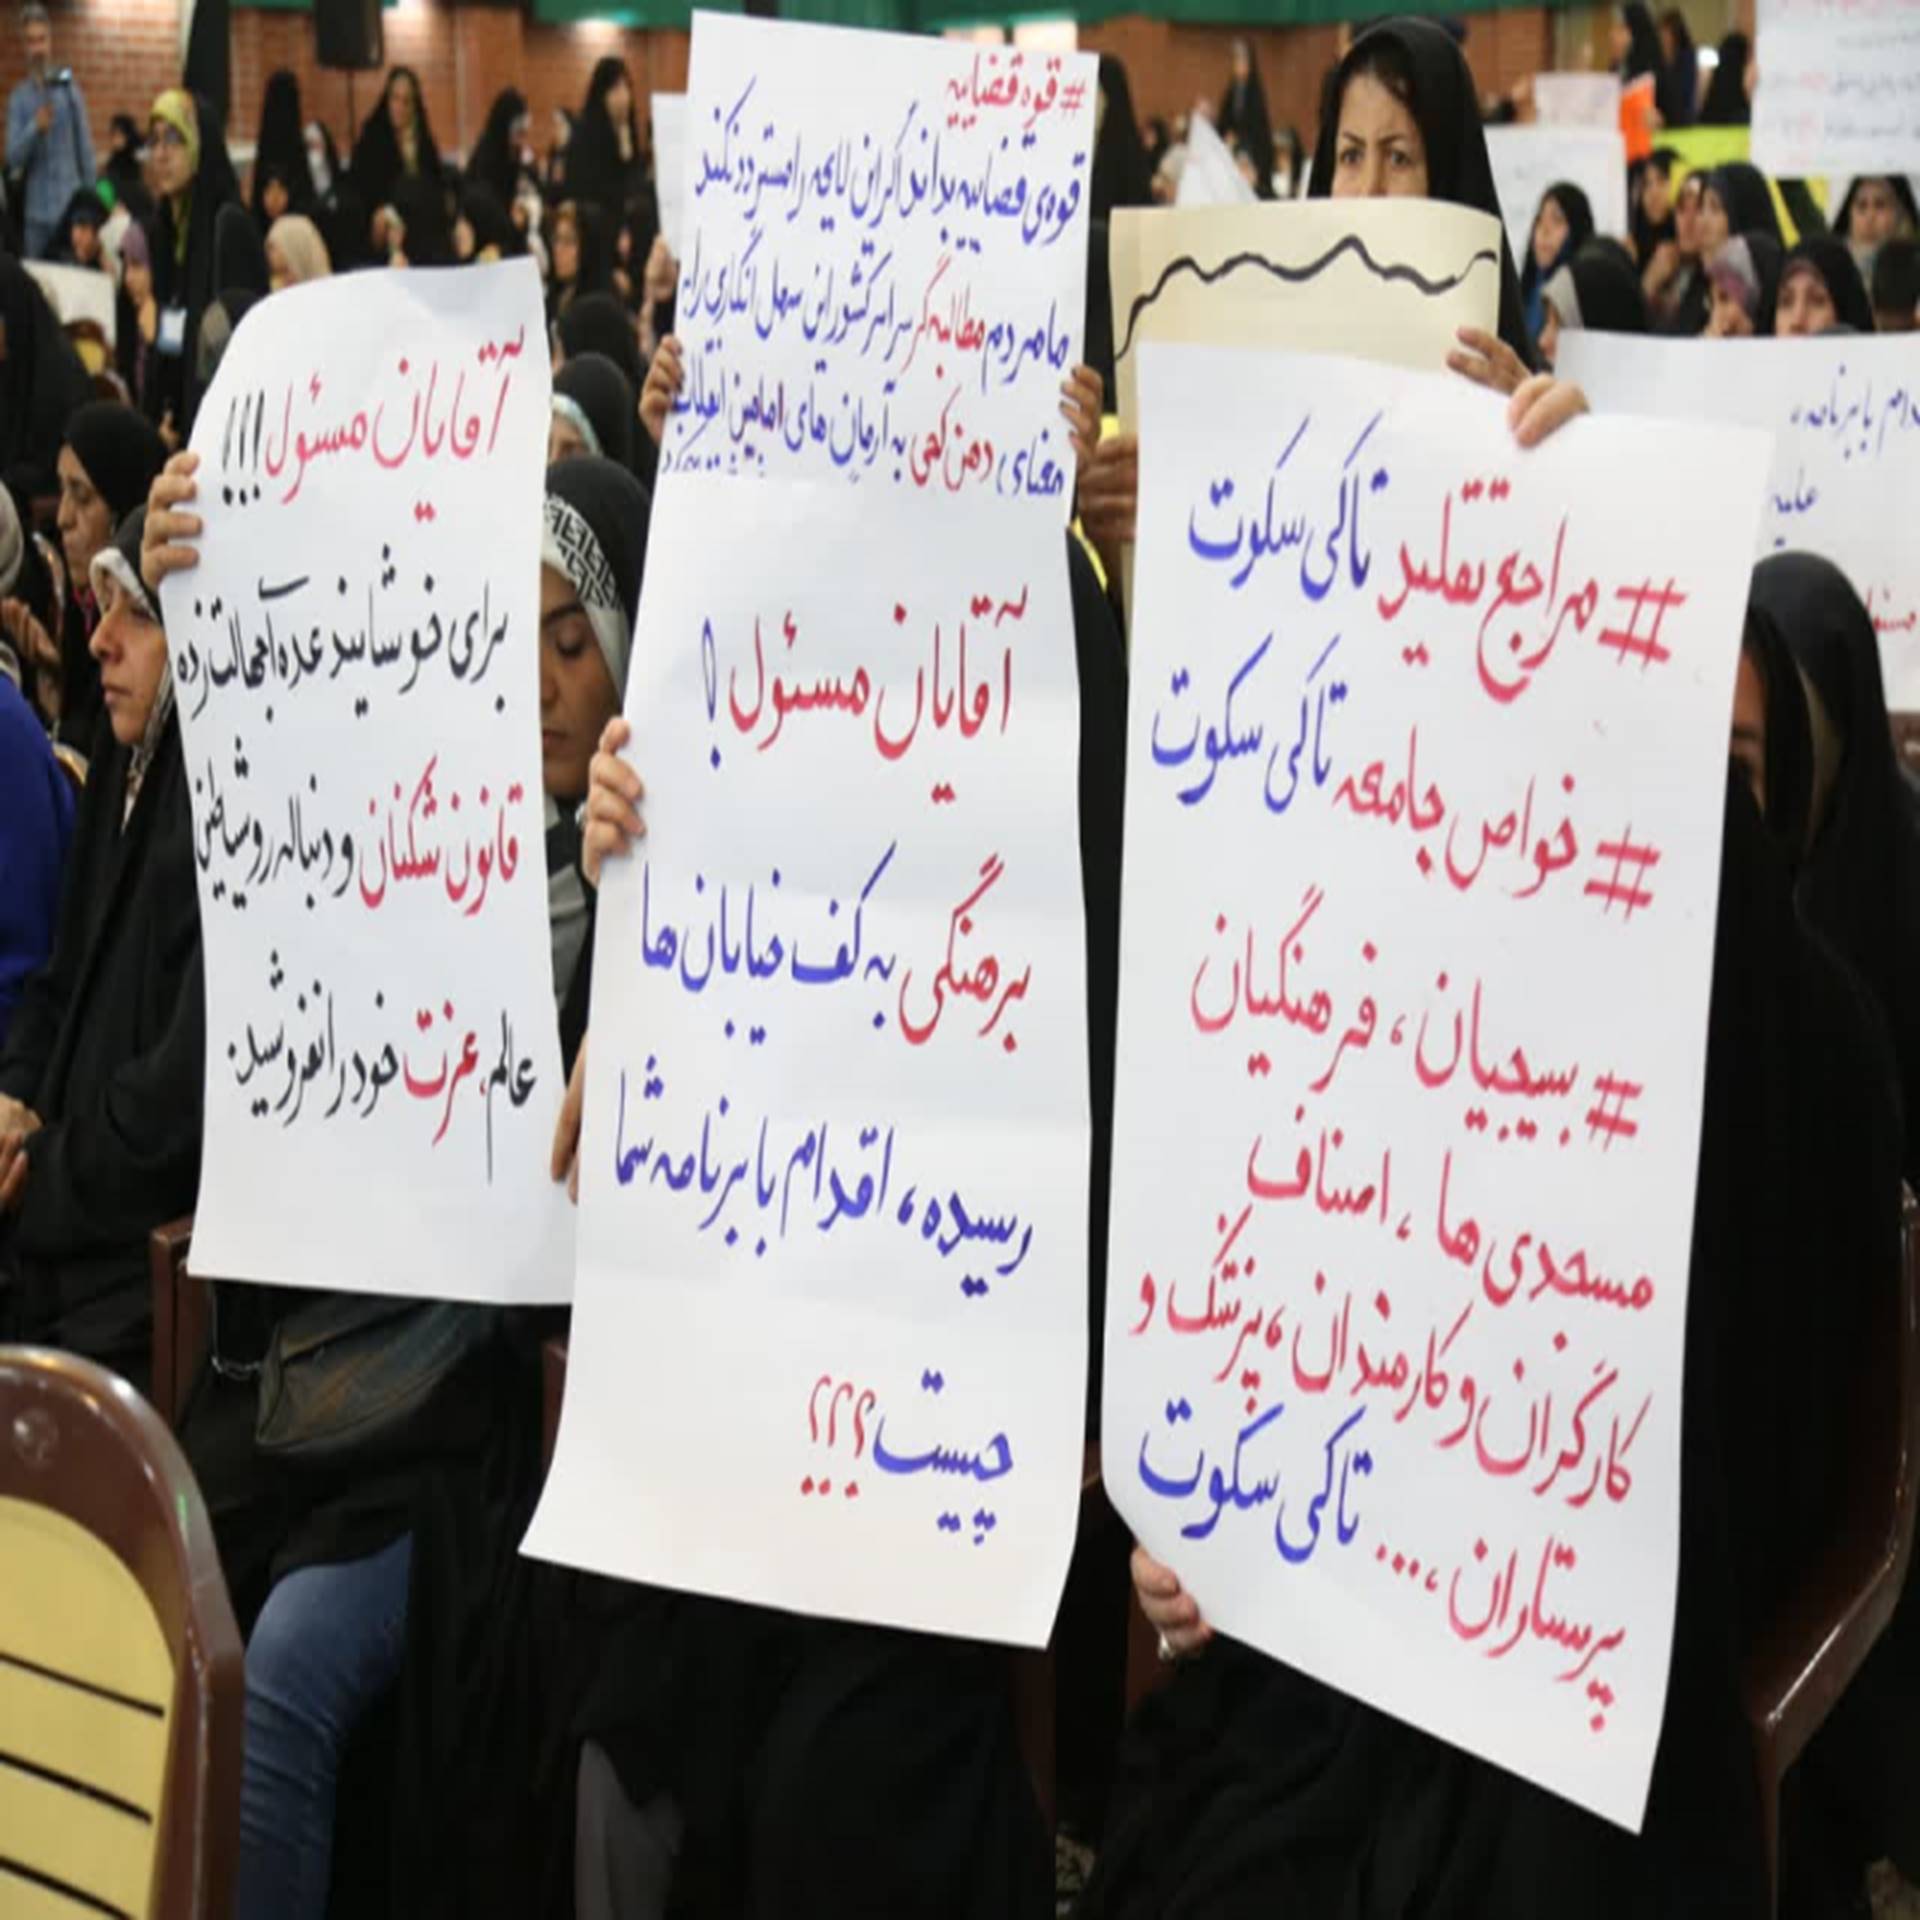 #قوه قضاییه
قوه‌ی قضاییه بداند اگر این لایحه را مسترد نکند
ما مردم مطالبه‌گر سراسر کشور این سهل انگاری را به
معنای دهن کجی به آرمان های امامین انقلاب
آقایان مسئول!
برهنگی به کف خیابان ها
رسیده، اقدام با برنامه شما
چیست؟؟؟
#مراجع تقلید تا کی سکوت
#خواص جامعه تا کی سکوت
#بسیجیان، فرهنگیان
مسجدی ها، اصناف
کارگران و کارمندان، پزشک و
پرستاران،... تا کی سکوت
آقایان مسئول!!!
برای خوشایند عده‌ای جهالت زده
قانون شکنان و دنباله رو شیاطین
عالم، عزت خود را نفروشید.
دام با برنامه،
علیه